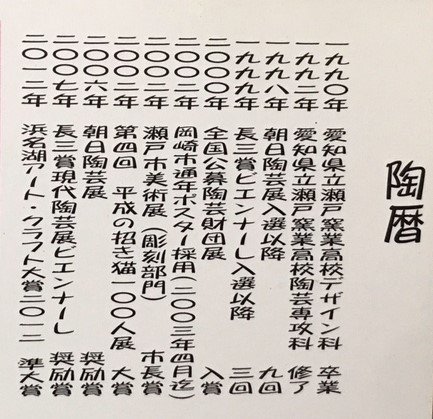 陶暦
一九九〇年 愛知県立瀬戸窯業高校デザイン科 卒業
一九九二年 愛知県立瀬戸窯業高校陶芸専攻科 修了
一九九八年 朝日陶芸展入選以降 九回
一九九九年 長三賞ビエンナーレ入選以降 三回
二〇〇〇年 全国公募陶芸財団展 入賞
二〇〇二年 岡崎市通年ポスター採用(二〇〇三年四月迄)
二〇〇二年 瀬戸市美術展(彫刻部門) 市長賞
二〇〇二年 第四回 平成の招き猫一〇〇人展 大賞
二〇〇六年 朝日陶芸展 奨励賞
二〇〇七年 長三賞現代陶芸展ビエンナーレ 奨励賞
二〇一二年 浜名湖アート・クラフト大賞二〇一二 準大賞